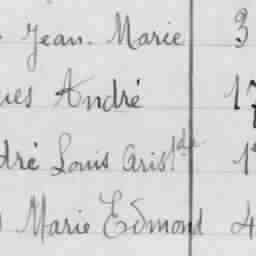 Jean-Marie 3
ues André 17
dré Louis Arist^de 1
Marie Edmond 4